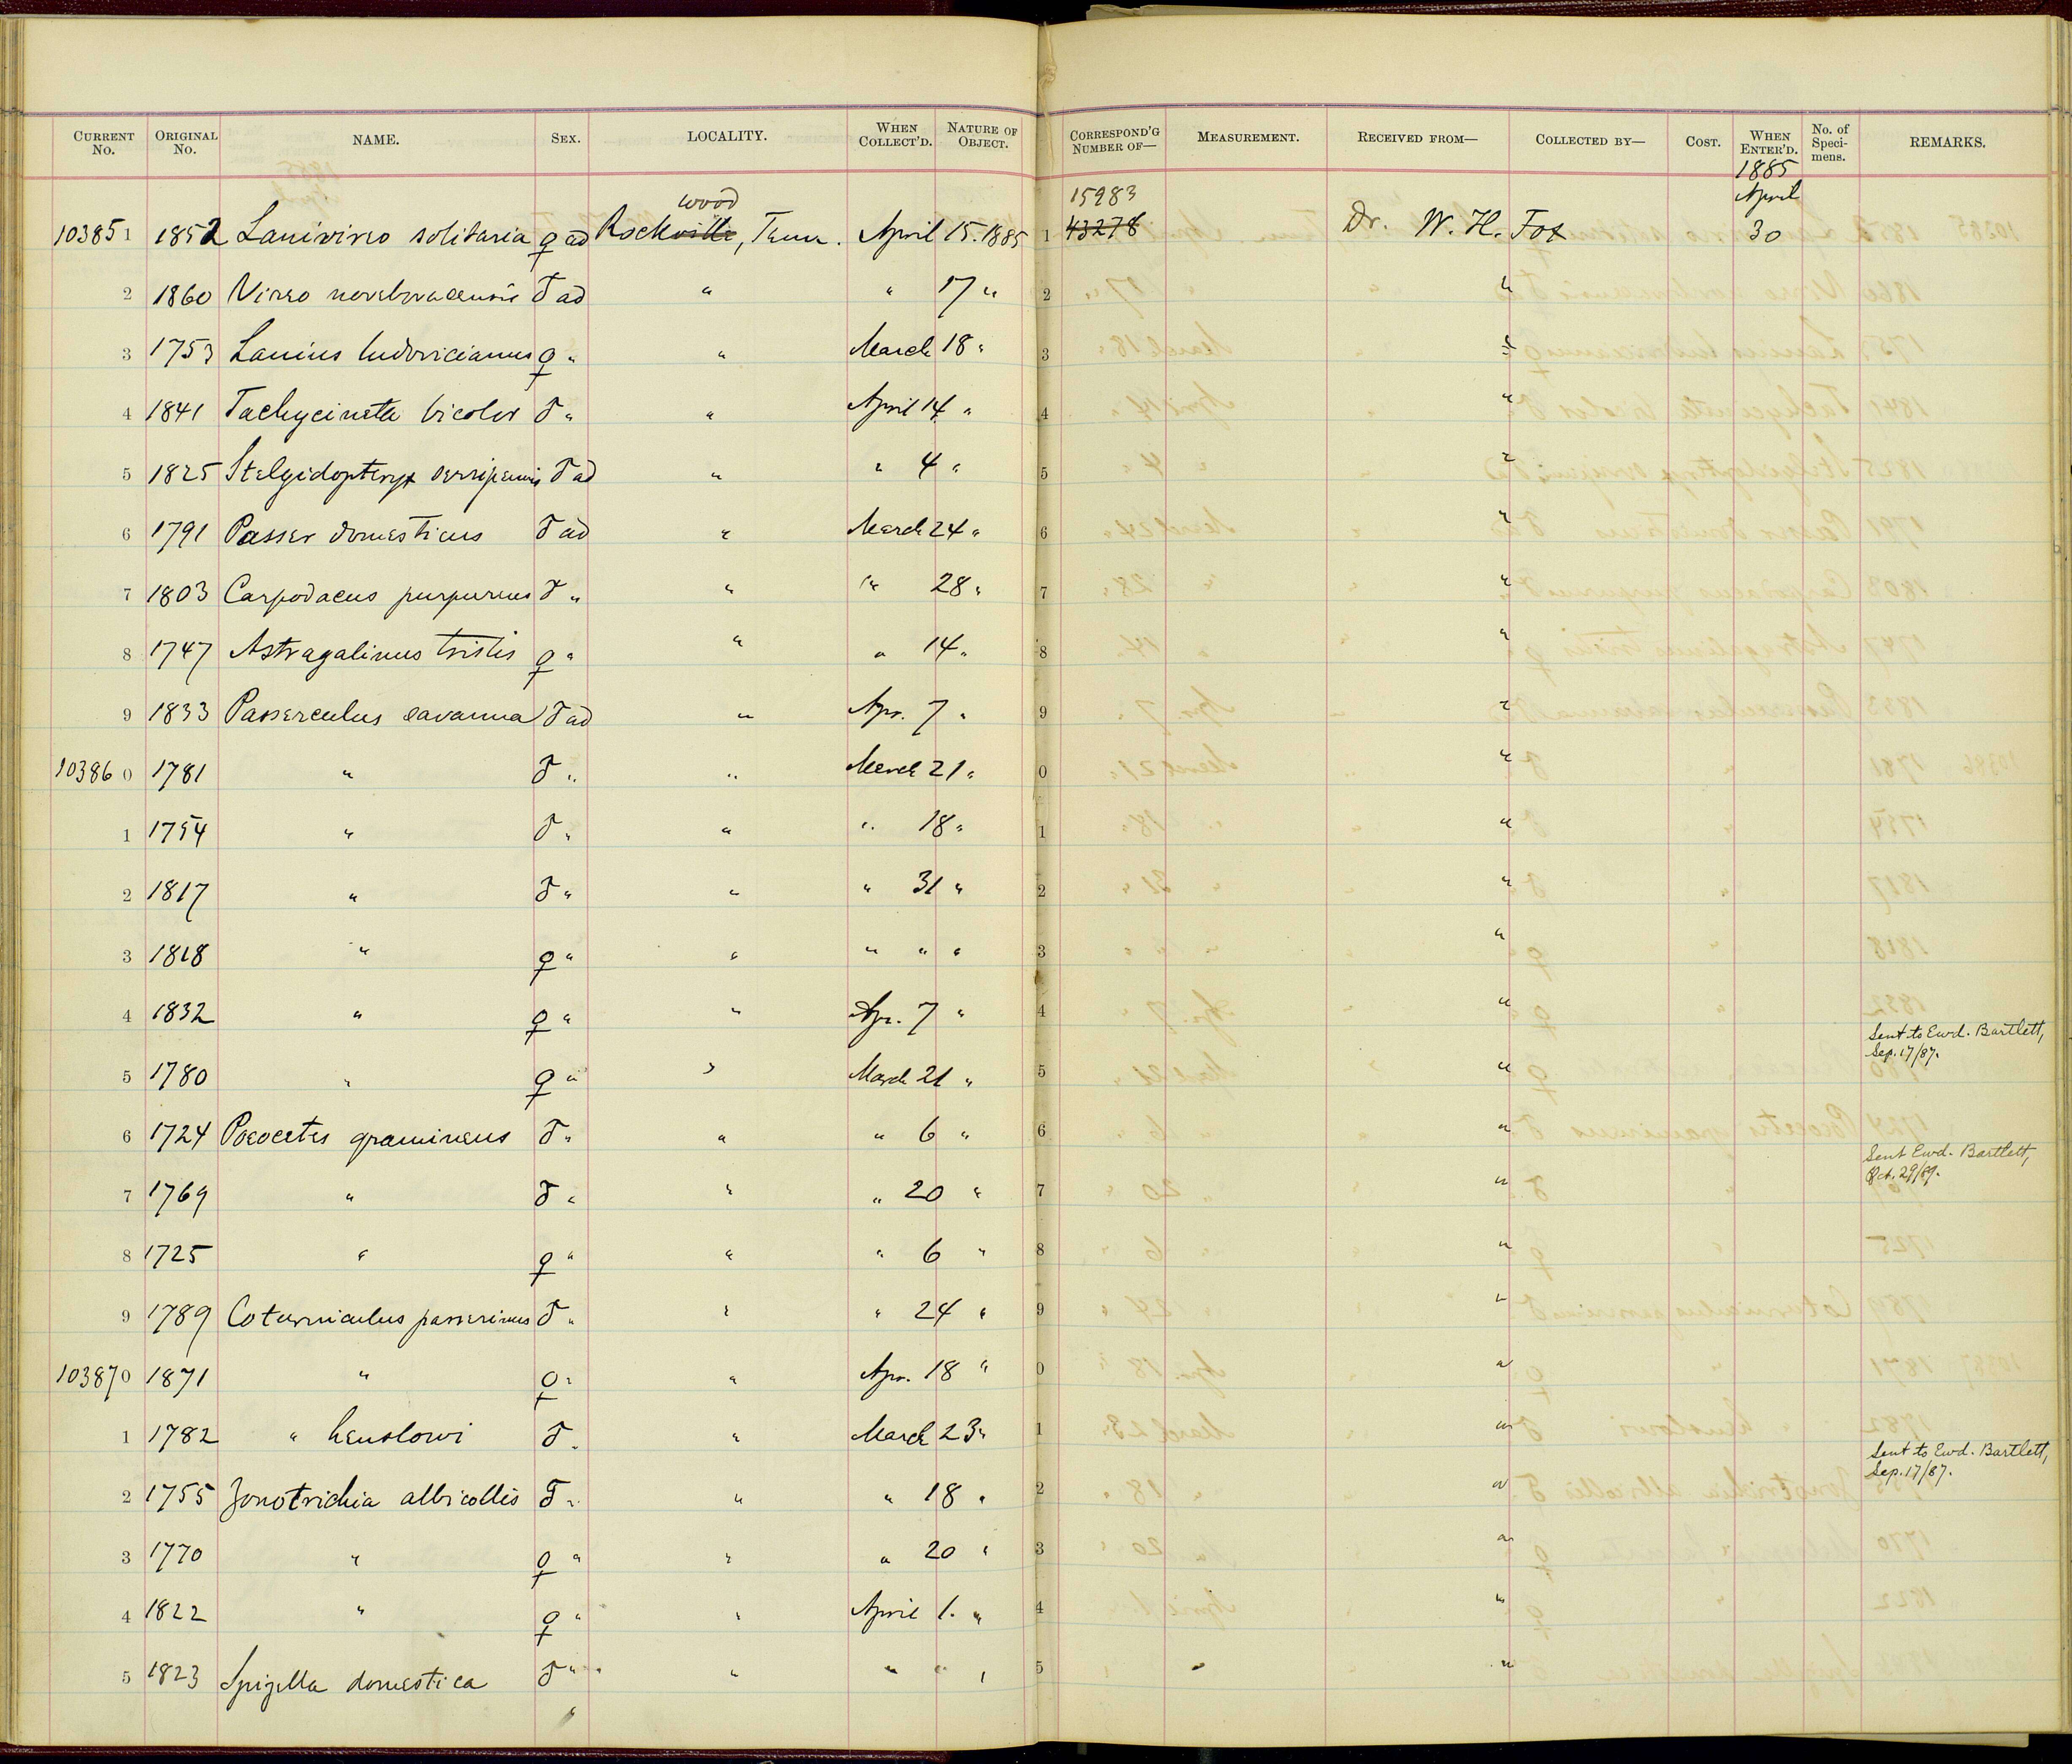 CURRENT No. ORIGINAL No. NAME. SEX. LOCALITY. WHEN COLLECT'D. NATURE OF OBJECT. CORRESPOND'G NUMBER OF— MEASUREMENT. RECEIVED FROM— COLLECTED BY— COST. WHEN ENTER'D. No. of Speci-mens. REMARKS.
1885
wood 15983 April
10385 1 1852 Lanivireo solitaria ♀ ad Rockville, Tenn. April 15. 1885 1 43278 Dr. W. H. Fox 30
2 1860 Vireo noveboracensis ♂ ad " " 17 " 2 "
3 1753 Lanius ludovicianus ♀ " " March 18 " 3 "
4 1841 Tachycineta bicolor ♂ " " April 14 " 4 "
5 1825 Stelgidopteryx serripennis ♂ ad " " 4 " 5 "
6 1791 Passer domesticus ♂ ad " March 24 " 6 "
7 1803 Carpodacus purpureus ♂ " " " 28 " 7 "
8 1747 Astragalinus tristis ♀ " " " 14 " 8 "
9 1833 Passerculus savanna ♂ ad " Apr. 7 " 9 "
10386 0 1781 " ♂ " " March 21 " 0 "
1 1754 " ♂ " " " 18 " 1 "
2 1817 " ♂ " " " 31 " 2 "
3 1818 " ♀ " " " " " 3 "
4 1832 " ♀ " " Apr. 7 " 4 "
Sent to Ewd. Bartlett,
Sep. 17/87.
5 1780 " ♀ " " March 21 " 5 "
6 1724 Poocetes gramineus ♂ " " " 6 " 6 "
Sent Ewd. Bartlett,
Oct. 29/89.
7 1769 " ♂ " " " 20 " 7 "
8 1725 " ♀ " " " 6 " 8 "
9 1789 Coturniculus passerinus ♂ " " " 24 " 9 "
10387 0 1871 " ♀ " " Apr. 18 " 0 "
1 1782 " henslowi ♂ " " March 23 " 1 "
Sent to Ewd. Bartlett,
Sep. 17/87.
2 1755 Zonotrichia albicollis ♂ " " " 18 " 2 "
3 1770 " ♀ " " " 20 " 3 "
4 1822 " ♀ " " April 1. " 4 "
5 1823 Spizella domestica ♂ " " " " " 5 "